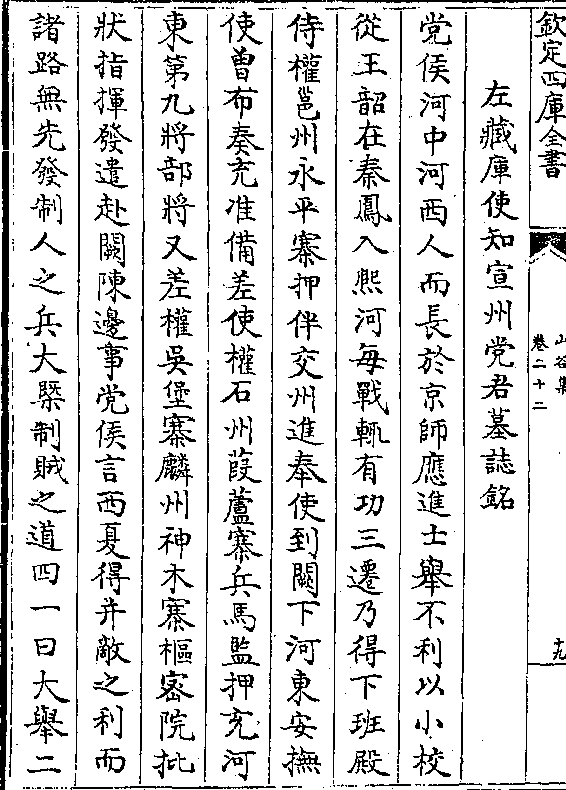 欽定四庫全書
山谷集
卷二十二
十九
左藏庫使知宣州党君墓誌銘
党侯河中河西人而長於京師應進士舉不利以小校
從王韶在秦鳳入熙河每戰輒有功三遷乃得下班殿
侍權邕州永平寨押伴交州進奉使到闕下河東安撫
使曽布奏充准備差使權石州葭蘆寨兵馬監押充河
東第九將部將又差權吳堡寨麟州神木寨樞密院批
狀指揮發遣赴闕陳邊事党侯言西夏得并敵之利而
諸路無先發制人之兵大槩制賊之道四一曰大舉二